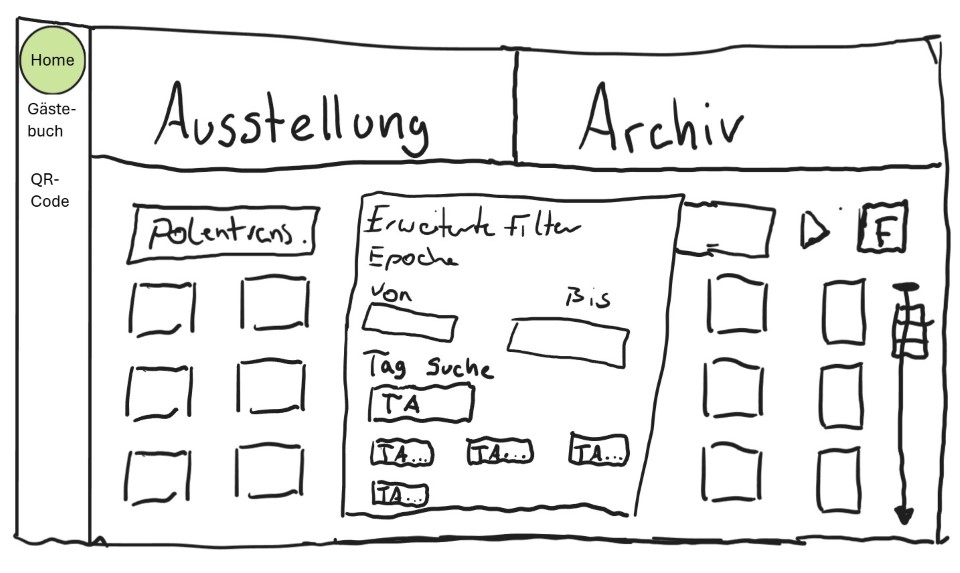 Home
Gäste-
buch
QR-
Code
Ausstellung
Archiv
F
Erweiterte Filter
Epoche
Von
Bis
Tag Suche
TA
TA...
TA...
TA...
TA...